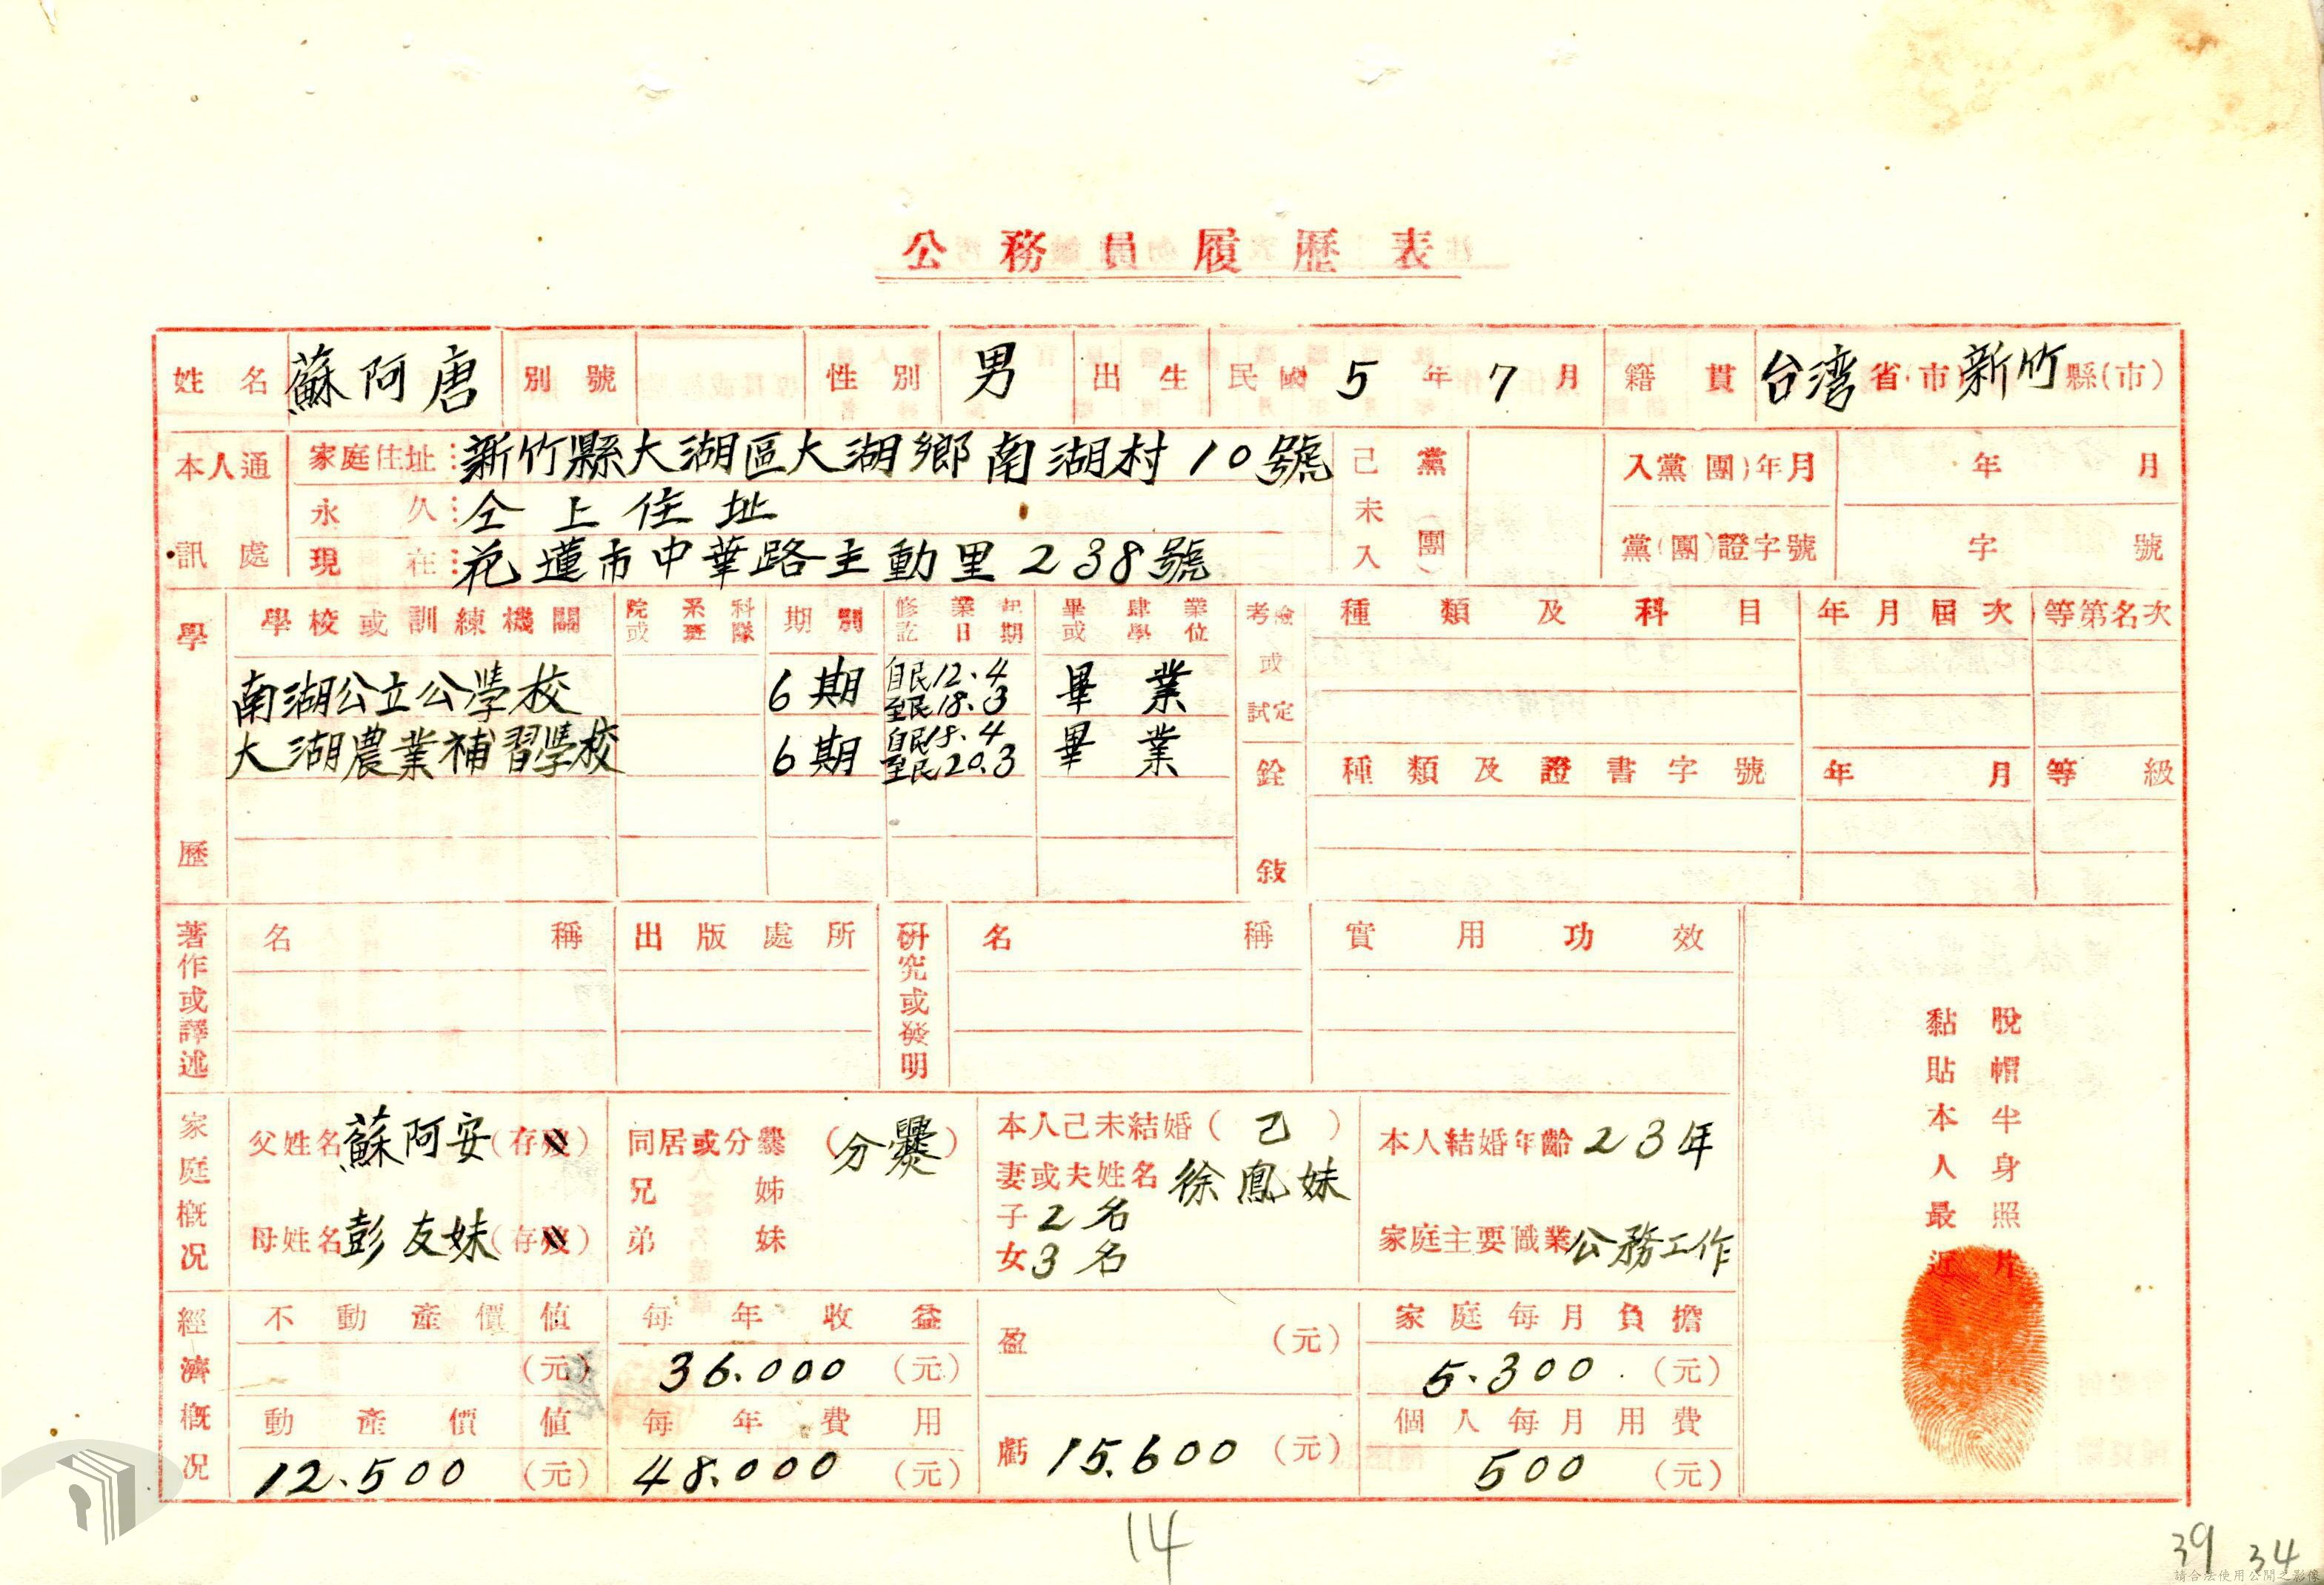 公務員履歷表
姓名 蘇阿唐 別號 性別 男 出生 民國 5 年 7 月 籍貫 台湾 省(市) 新竹 縣(市)
本人通訊處
家庭住址: 新竹縣大湖區大湖鄉南湖村10號
永久: 仝上住址
現在: 花蓮市中華路主動里238號
已未入黨(團)
入黨(團)年月 年 月
黨(團)證字號 字 號
學歷
學校或訓練機關 院或 系班 科隊 期別 修業起訖日期 畢肄業或學位
南湖公立公學校 6期 自民12.4 至民18.3 畢業
大湖農業補習學校 6期 自民18.4 至民20.3 畢業
考試或檢定 種類及科目 年月屆次 等第名次
銓敍 種類及證書字號 年月 等級
著作或譯述 名稱 出版處所
研究或發明 名稱 實用功效
家庭概況
父姓名 蘇阿安 (存歿)
母姓名 彭友妹 (存歿)
同居或分爨 (分爨)
兄 姊
弟 妹
本人已未結婚(己)
妻或夫姓名 徐鳳妹
子 2名
女 3名
本人結婚年齡 23年
家庭主要職業 公務工作
經濟概況
不動產價值 (元)
動產價值 12.500 (元)
每年收益 36.000 (元)
每年費用 48.000 (元)
盈 (元)
虧 15.600 (元)
家庭每月負擔 5.300 (元)
個人每月用費 500 (元)
脫帽半身照片
黏貼本人最近
14
39 34
請合法使用公開之影像